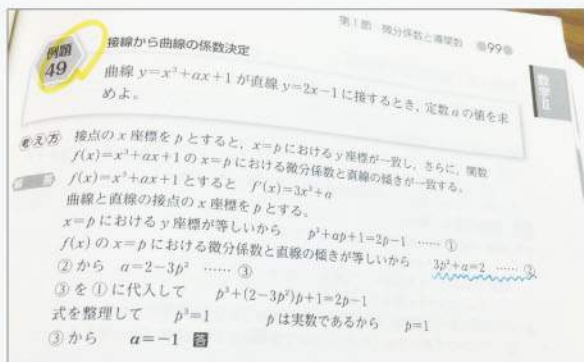 第1節 微分係数と導関数 99
例題 49 接線から曲線の係数決定
数学Ⅱ
曲線 y=x³+ax+1 が直線 y=2x-1 に接するとき, 定数 a の値を求
めよ。
考え方 接点の x 座標を p とすると, x=p における y 座標が一致し, さらに, 関数
f(x)=x³+ax+1 の x=p における微分係数と直線の傾きが一致する。
f(x)=x³+ax+1 とすると f'(x)=3x²+a
曲線と直線の接点の x 座標を p とする。
x=p における y 座標が等しいから p³+ap+1=2p-1 …… ①
f(x) の x=p における微分係数と直線の傾きが等しいから 3p²+a=2 …… ②
②から a=2-3p² …… ③
③を①に代入して p³+(2-3p²)p+1=2p-1
式を整理して p³=1 p は実数であるから p=1
③から a=-1 答